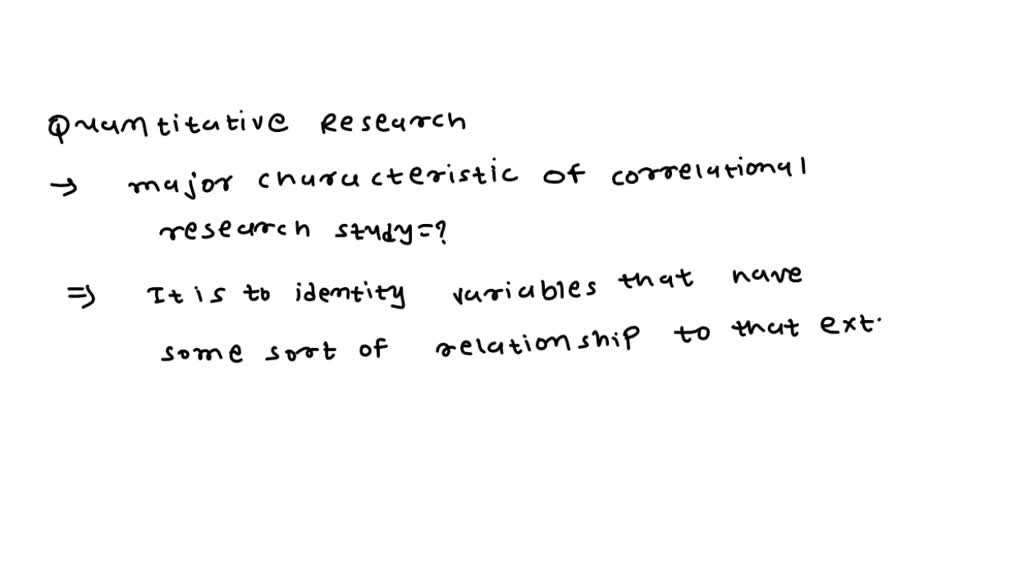 Quantitative Research
→ major characteristic of correlational
research study=?
⇒ It is to identity variables that have
some sort of relationship to that ext.